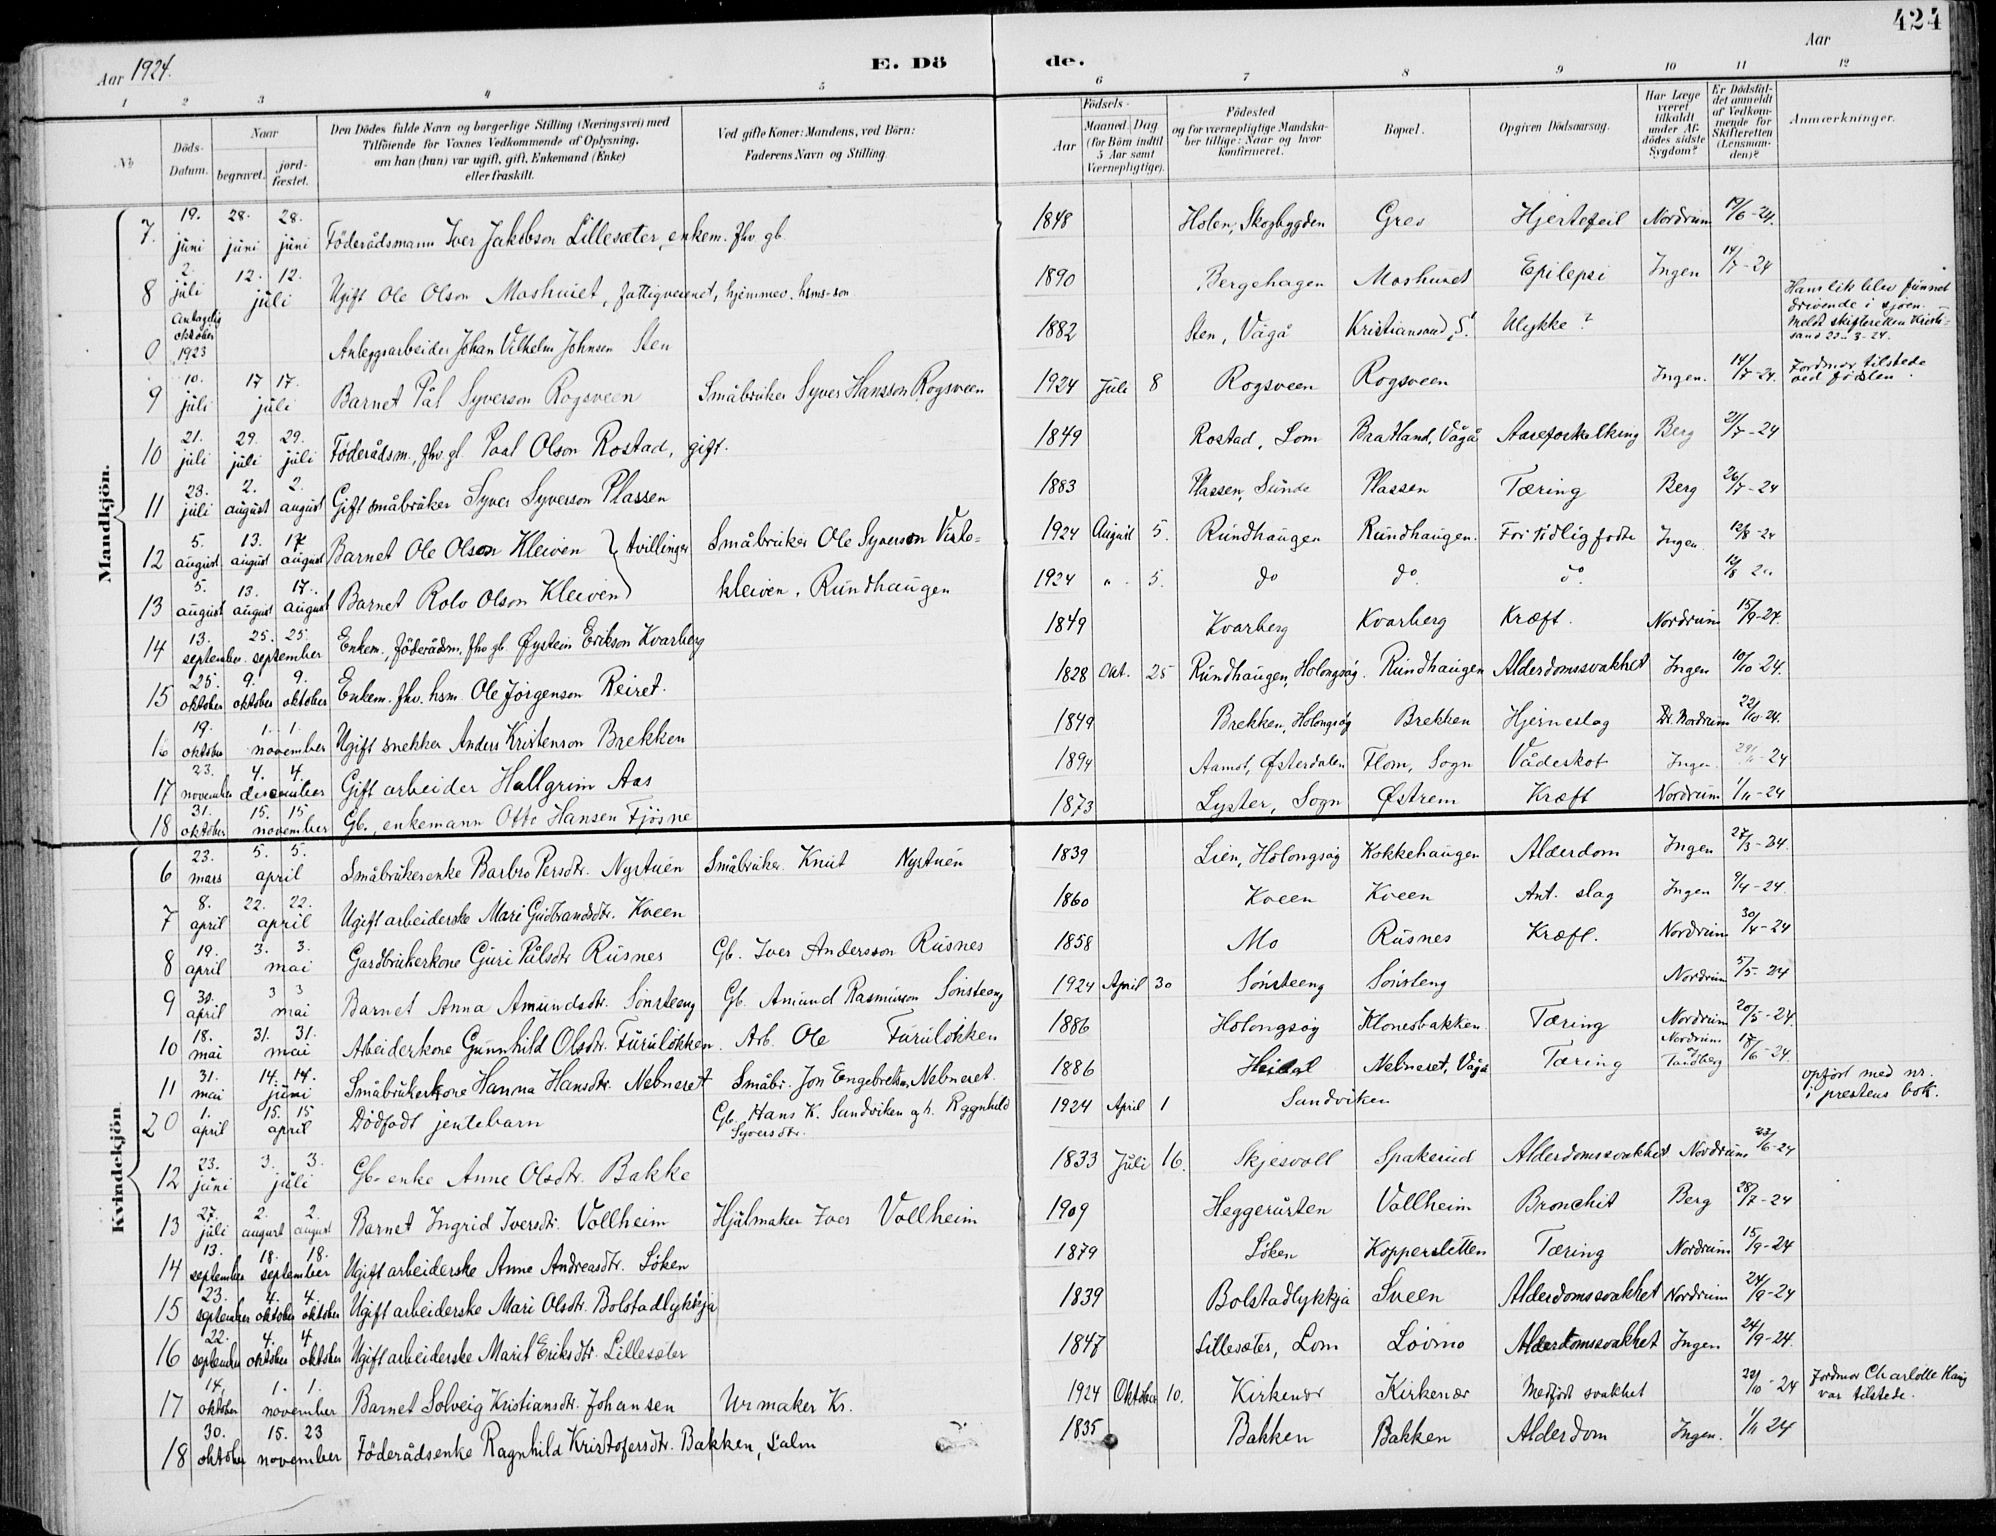 424
Aar 1924.
E. Dö de.
Aar
1 2 3 4 5 6 7 8 9 10 11 12
No
Döds-Datum.
Naar
begravet.
jord-fæstet.
Den Dödes fulde Navn og borgerlige Stilling (Næringsvei) med
Tilföiende for Voxnes Vedkommende af Oplysning,
om han (hun) var ugift, gift, Enkemand (Enke)
eller fraskilt.
Ved gifte Koner: Mandens, ved Börn:
Faderens Navn og Stilling
Födsels-
Aar
Maaned. Dag
(for Börn indtil
5 Aar samt
Værnepligtige).
Födested
og for værnepligtige Mandska-
ber tillige: Naar og hvor
konfirmeret.
Bopæl.
Opgiven Dödsaarsag.
Har Læge
været
tilkaldt
under Af-
dödes sidste
Sygdom?
Er Dödsfal-
det anmeldt
af Vedkom-
mende for
Skifteretten
(Lensman-
den)?
Anmærkninger.
Mandkjön.
7. 19. juni 28. juni 28. juni Föderådsmann Iver Jakobson Lillesæter, enkem. fhv gb. 1848 Holen, Skogbygden Grev Hjertefeil Nordrum 17/6-24.
8 2. juli 12. 12. juli Ugift Ole Olson Moshuset, fattigvesenet, hjemmev. hsms-son 1890 Bergehagen Moshuset Epilepsi Ingen 14/7-24
0 Antagelig oktober 1923 Anleggsarbeider Johan Vilhelm Johnsen Sten 1882 Sten, Vågå Kristiansand S. Ulykke? Hans lik blev funnet drivende i sjøen. Meldt skifteretten Kristi-sand 22-3-24.
9 10. juli 17 17. juli Barnet Pål Syverson Rogsveen Småbruker Syver Hansson Rogsveen 1924 Juli 8 Rogsveen Rogsveen Ingen. 14/7-24. Jordmor tilstede ved födslen.
10 21. juli 29. juli 29. juli Föderådsm., fhv. gb. Paal Olson Rostad, gift. 1849 Rostad, Lom Bratland, Vågå Aareforkalkning Berg 21/7-24
11 23. juli 2. august 2. august Gift småbruker Syver Syverson Plassen 1883 Plassen, Sunde Plassen Tæring Berg 26/7-24
12 5. august 13. august 17 august Barnet Ole Olson Kleiven } tvillinger Småbruker Ole Syverson Visto- 1924 August 5. Rundhaugen Rundhaugen. For tidlig fødte Ingen. 12/8-24
13 5. august 13. august 17. august Barnet Rolv Olson Kleiven kleiven, Rundhaugen 1924 " 5. do do. do. 12/8 24
14 13. september 25. 25. september Enkem., föderådsm. fhv gb. Øystein Erikson Kvarberg 1849 Kvarberg Kvarberg Kræft. Nordrum 15/9-24.
15 25. oktober 9. oktober 9. oktober Enkem. fhv. hsm. Ole Jörgenson Reiret. 1828 Okt. 25 Rundhaugen, Holongsøy. Rundhaugen Alderdomssvakhet Ingen 10/10-24.
16 19. oktober 1. 1. november Ugift snekker Anders Kristenson Brekken 1849 Brekken, Holongsøy Brekken Hjerneslag Dr. Nordrum 22/10-24.
17 23. november 4. 4. desember Gift arbeider Hallgrim Aas 1894 Aamot, Østerdalen Flom, Sogn Vådeskot Ingen. 24
18 31. oktober 15. 15 november Gb., enkemann Otto Hansen Fjösne 1873 Lyster, Sogn Østrem Kræft Nordrum 1/11-24
Kvindekjön.
6 23. mars 5. 5. april Småbrukerenke Barbro Persdtr. Nystuen Småbruker Knut Nystuen 1839 Lien, Holongsøy Kokkehaugen Alderdom Ingen 27/3-24.
7 8. april 22. 22. april Ugift arbeiderske Mari Gudbrandsdtr. Kveen 1860 Kveen Kveen Ant. slag Ingen 9/4-24.
8 19. april 3. 3. mai Gardbrukerkone Guri Pålsdtr Rusnes Gb. Iver Andersson Rusnes 1858 Mo Rusnes Kræft. Nordrum 30/4-24
9 30. april 3 3 mai Barnet Anna Amundsdtr. Sønsteeng Gb. Amund Rasmusson Sønsteeng 1924 April 30 Sønsteeng Sønsteng Nordrum 5/5-24
10 18. mai 31. 31. mai Abeiderkone Gunnhild Olsdtr. Furulökken. Arb. Ole Furulökken 1886 Holongsøy Klonesbakken Tæring Nordrum 20/5-24.
11 31. mai 14. 14. juni Småbrukerkone Hanna Hansdtr. Nebneret Småbr. Jon Engebretsen Nebneret. 1886 Heidal Nebneret, Vågå Tæring Nordrum og Tandberg 17/6-24.
20 1. april 15. 15 april Dödfødt jentebarn Gb. Hans K. Sandviken og h. Ragnhild Syversdtr. 1924 April 1 Sandviken opfört med nr. i prestens bok.
12 23. juni 3. 3. juli Gb-enke Anne Olsdtr. Bakke 1833 Juli 16. Skjesvoll Spakerud Alderdomssvakhet Nordrum 23/6-24
13 27. juli 2. august 2. august Barnet Ingrid Iversdtr. Vollheim Hjulmaker Iver Vollheim 1909 Heggerusten Vollheim Bronchit Berg 28/7-24
14 13. september 18. 18. september Ugift arbeiderske Anne Andreasdtr. Löken 1879 Löken Kopperslætten Tæring Nordrum 15/9-24
15 23. september 4. oktober 4. oktober Ugift arbeiderske Mari Olsdtr. Bolstadlykkja 1839 Bolstadlykkja Sveen Alderdomssvakhet Nordrum 24/9-24
16 22. september 4. oktober 4 oktober Ugift arbeiderske Marit Eriksdtr. Lillesæter 1847 Lillesæter, Lom Lövmo Alderdomssvakhet Ingen 24/9-24.
17 14. oktober 1. 1. november Barnet Solveig Kristiansdtr. Johansen Urmaker Kr. 1924 Oktober 10. Kirkenær Kirkenær Medfödt svakhet 22/10-24 Jordmor Charlotte Haug var tilstede.
18 30. oktober 15. 23 november Föderådsenke Ragnhild Kristofersdtr. Bakken, Salm 1835 Bakken Bakken Alderdom Ingen. 1/11 24